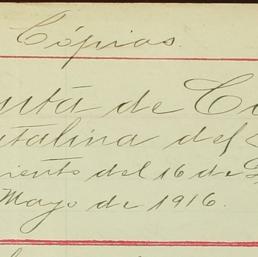 Cópias.
unta de Cu
atalina del
iento del 16 de
Mayo de 1916.